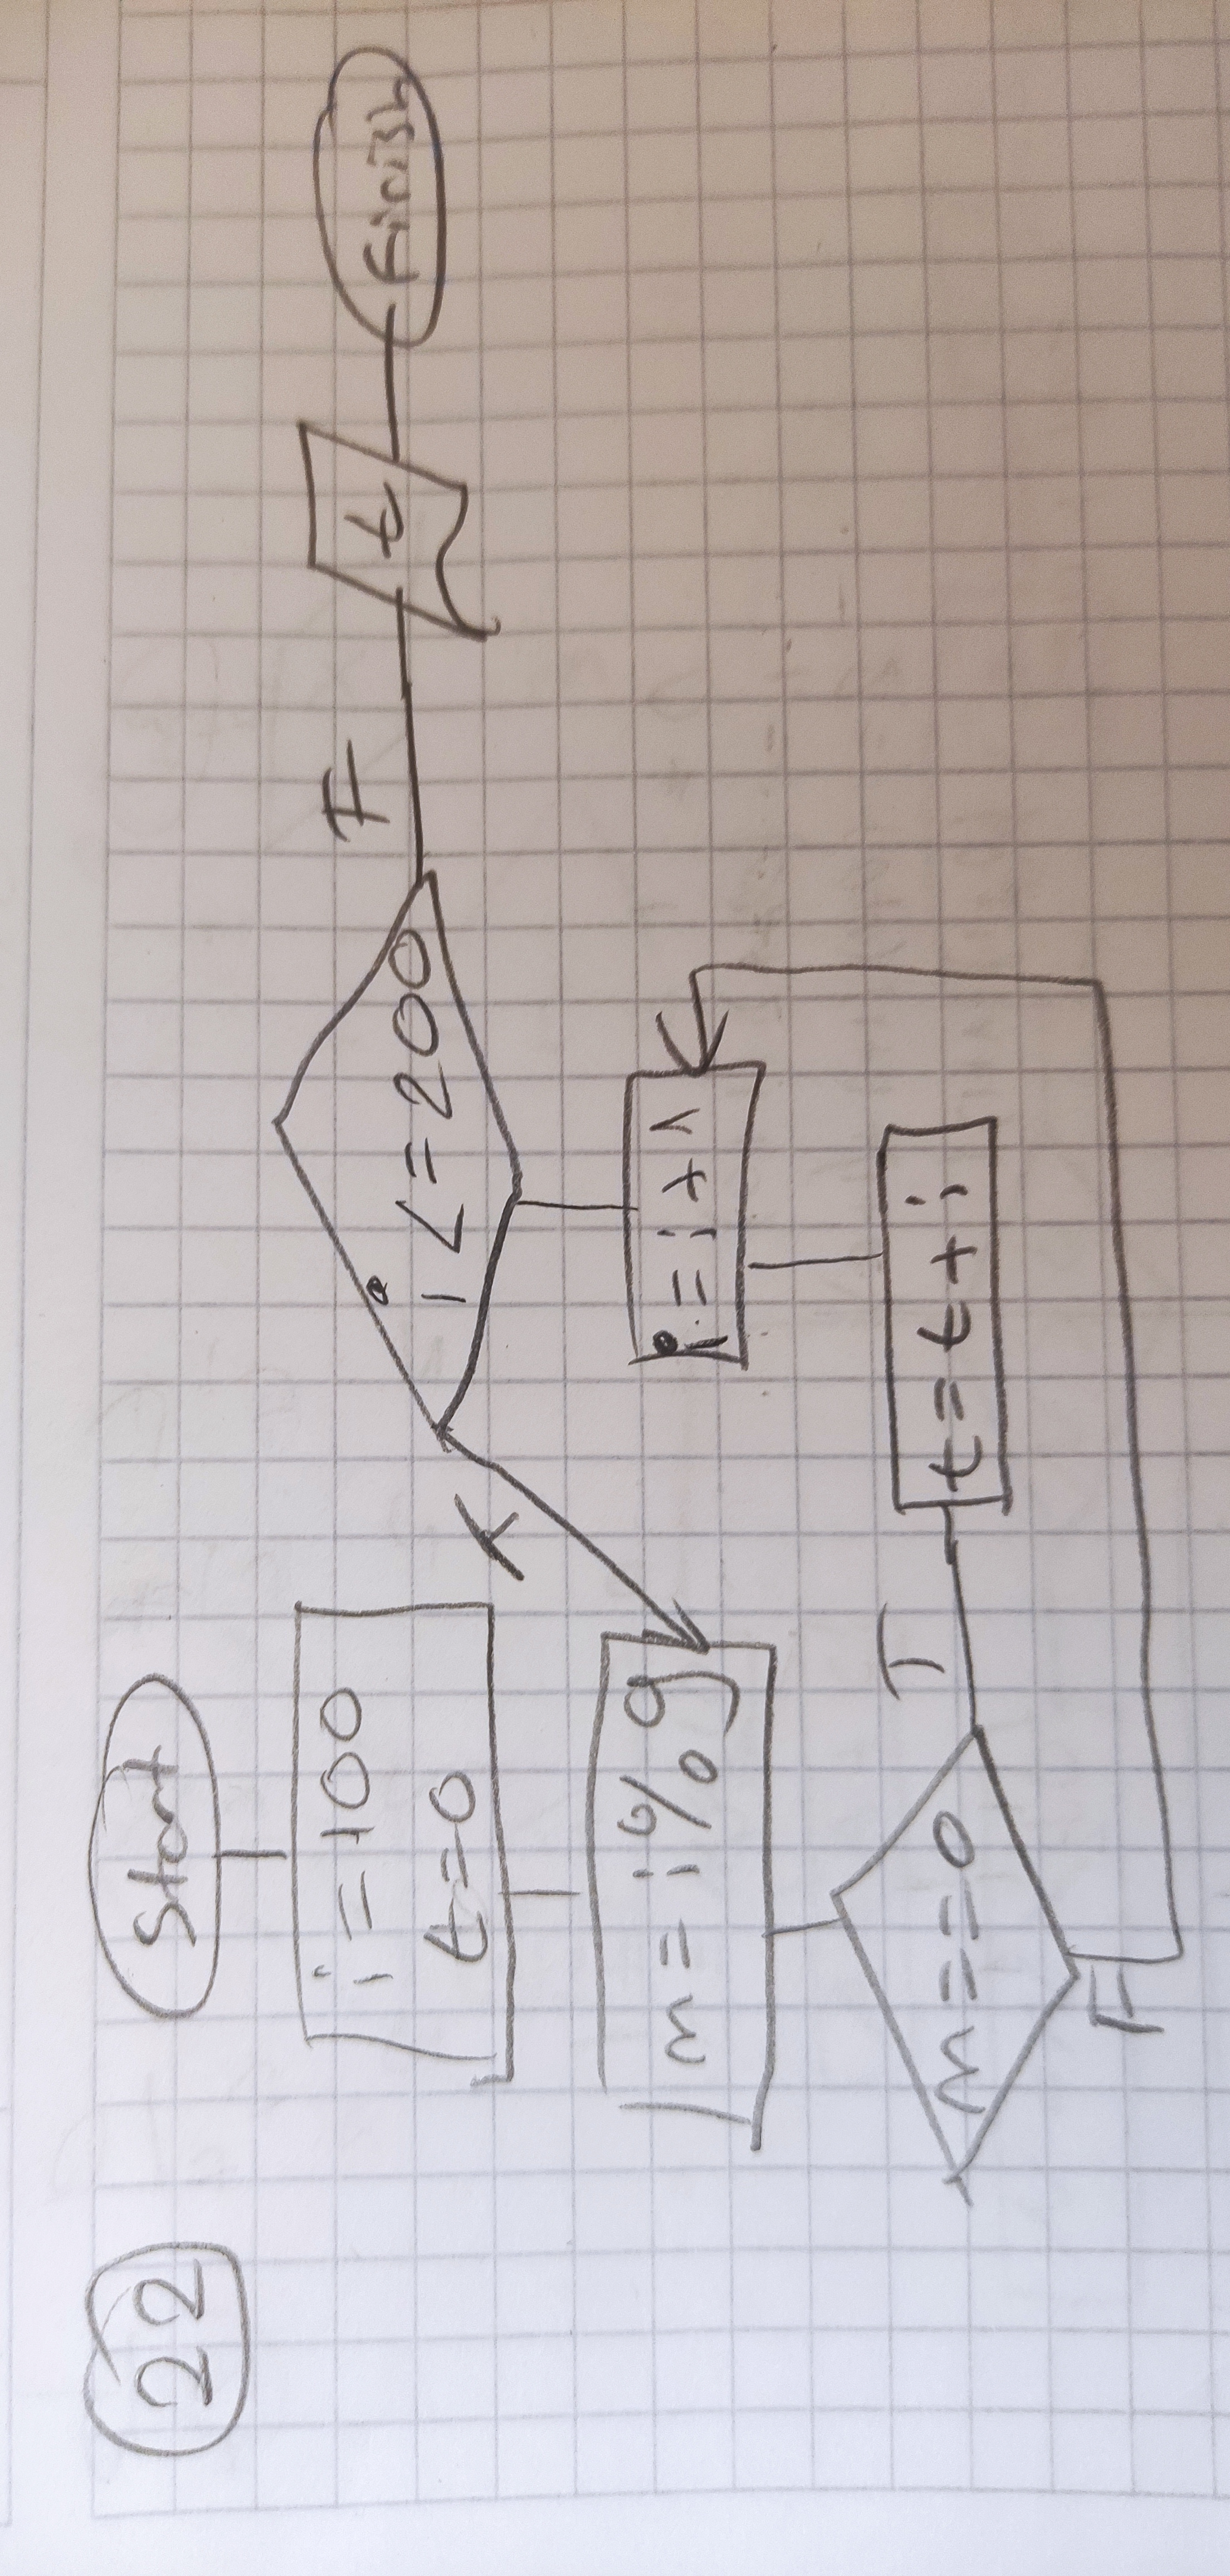 22
Start
i = 100
t = 0
m = i % 9
m = = 0
T
F
t = t + i
i = i + 1
i <= 200
T
F
t
Finish